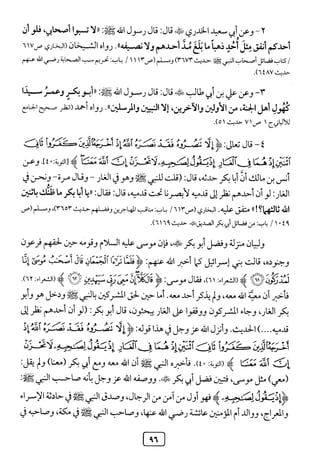 ٢ - وعن أبي سعيد الخدري ﷺ قال: قال رسول الله ﷺ: «لا تسبوا أصحابي، فلو أن
أحدكم أنفق مِثْلَ أُحُدٍ ذهباً ما بَلَغَ مُدَّ أحدهم ولا نصيفه». رواه الشيخان (البخاري ص٦١٧
/ كتاب فضائل أصحاب النبي ﷺ حديث ٣٦٧٣) ومسلم (ص١١١٣/ باب: تحريم سب الصحابة رضي الله عنهم
حديث ٦٤٨٧).
٣ - وعن علي بن أبي طالب ﷺ قال: قال رسول الله ﷺ: «أبو بكرٍ وعمرُ سيدا
كُهُولِ أهل الجنة، من الأولين والآخرين، إلا النبيين والمرسلين». رواه أحمد (انظر صحيح الجامع
للألباني ج١ ص٧١ حديث ٥١).
٤ - قال تعالى: ﴿إِلَّا تَنصُرُوهُ فَقَدْ نَصَرَهُ اللَّهُ إِذْ أَخْرَجَهُ الَّذِينَ كَفَرُوا ثَانِيَ
اثْنَيْنِ إِذْ هُمَا فِي الْغَارِ إِذْ يَقُولُ لِصَاحِبِهِ لَا تَحْزَنْ إِنَّ اللَّهَ مَعَنَا﴾ [التوبة: ٤٠]. وعن
أنس بن مالك أن أبا بكر حدثه، قال: (قلت للنبي ﷺ وهو في الغار - وقال مرة - ونحن في
الغار: لو أن أحدهم نظر إلى قدميه لأبصرنا تحت قدميه، قال: فقال: «يا أبا بكر ما ظنُّك باثنين
الله ثالثهما؟!» متفق عليه. البخاري (ص٦١٣/ باب: مناقب المهاجرين وفضلهم حديث ٣٦٥٣)، ومسلم (ص
١٠٤٩ / باب: من فضائل أبي بكر الصديق حديث ٦١٦٩).
ولبيان منزلة وفضل أبو بكر ﷺ، فإن موسى عليه السلام وقومه حين لحقهم فرعون
وجنوده، قالت بني إسرائيل كما أخبر الله عنهم: ﴿فَلَمَّا تَرَاءَى الْجَمْعَانِ قَالَ أَصْحَابُ مُوسَىٰ إِنَّا
لَمُدْرَكُونَ ﴿٦١﴾﴾ (الشعراء: ٦١)، فقال موسى: ﴿قَالَ كَلَّا إِنَّ مَعِيَ رَبِّي سَيَهْدِينِ ﴿٦٢﴾﴾ (الشعراء: ٦٢).
فأخبر أن معيَّة الله معه، ولم يذكر أحد معه. أما حين لحق المشركين بالنبي ﷺ ودخل هو وأبو
بكر الغار، وجاء المشركون ووقفوا على الغار يبحثون، قال أبو بكر: (لو أن أحدهم نظر إلى
قدميه....) الحديث. وأنزل الله عز وجل في هذا قوله: ﴿إِلَّا تَنصُرُوهُ فَقَدْ نَصَرَهُ اللَّهُ إِذْ
أَخْرَجَهُ الَّذِينَ كَفَرُوا ثَانِيَ اثْنَيْنِ إِذْ هُمَا فِي الْغَارِ إِذْ يَقُولُ لِصَاحِبِهِ لَا تَحْزَنْ
إِنَّ اللَّهَ مَعَنَا﴾ (التوبة: ٤٠). فأخبره النبي ﷺ أن الله معه ومع أبي بكر (معنا) ولم يقل:
(معي) مثل موسى، فتبين فضل أبي بكر ﷺ. ووصفه الله عز وجل بأنه صاحب النبي ﷺ:
﴿إِذْ يَقُولُ لِصَاحِبِهِ﴾ فهو أول من آمن من الرجال، وصدق النبي ﷺ في حادثة الإسراء
والمعراج، ووالد أم المؤمنين عائشة رضي الله عنها، وصاحب النبي ﷺ في مكة، وصاحبه في
٩٦